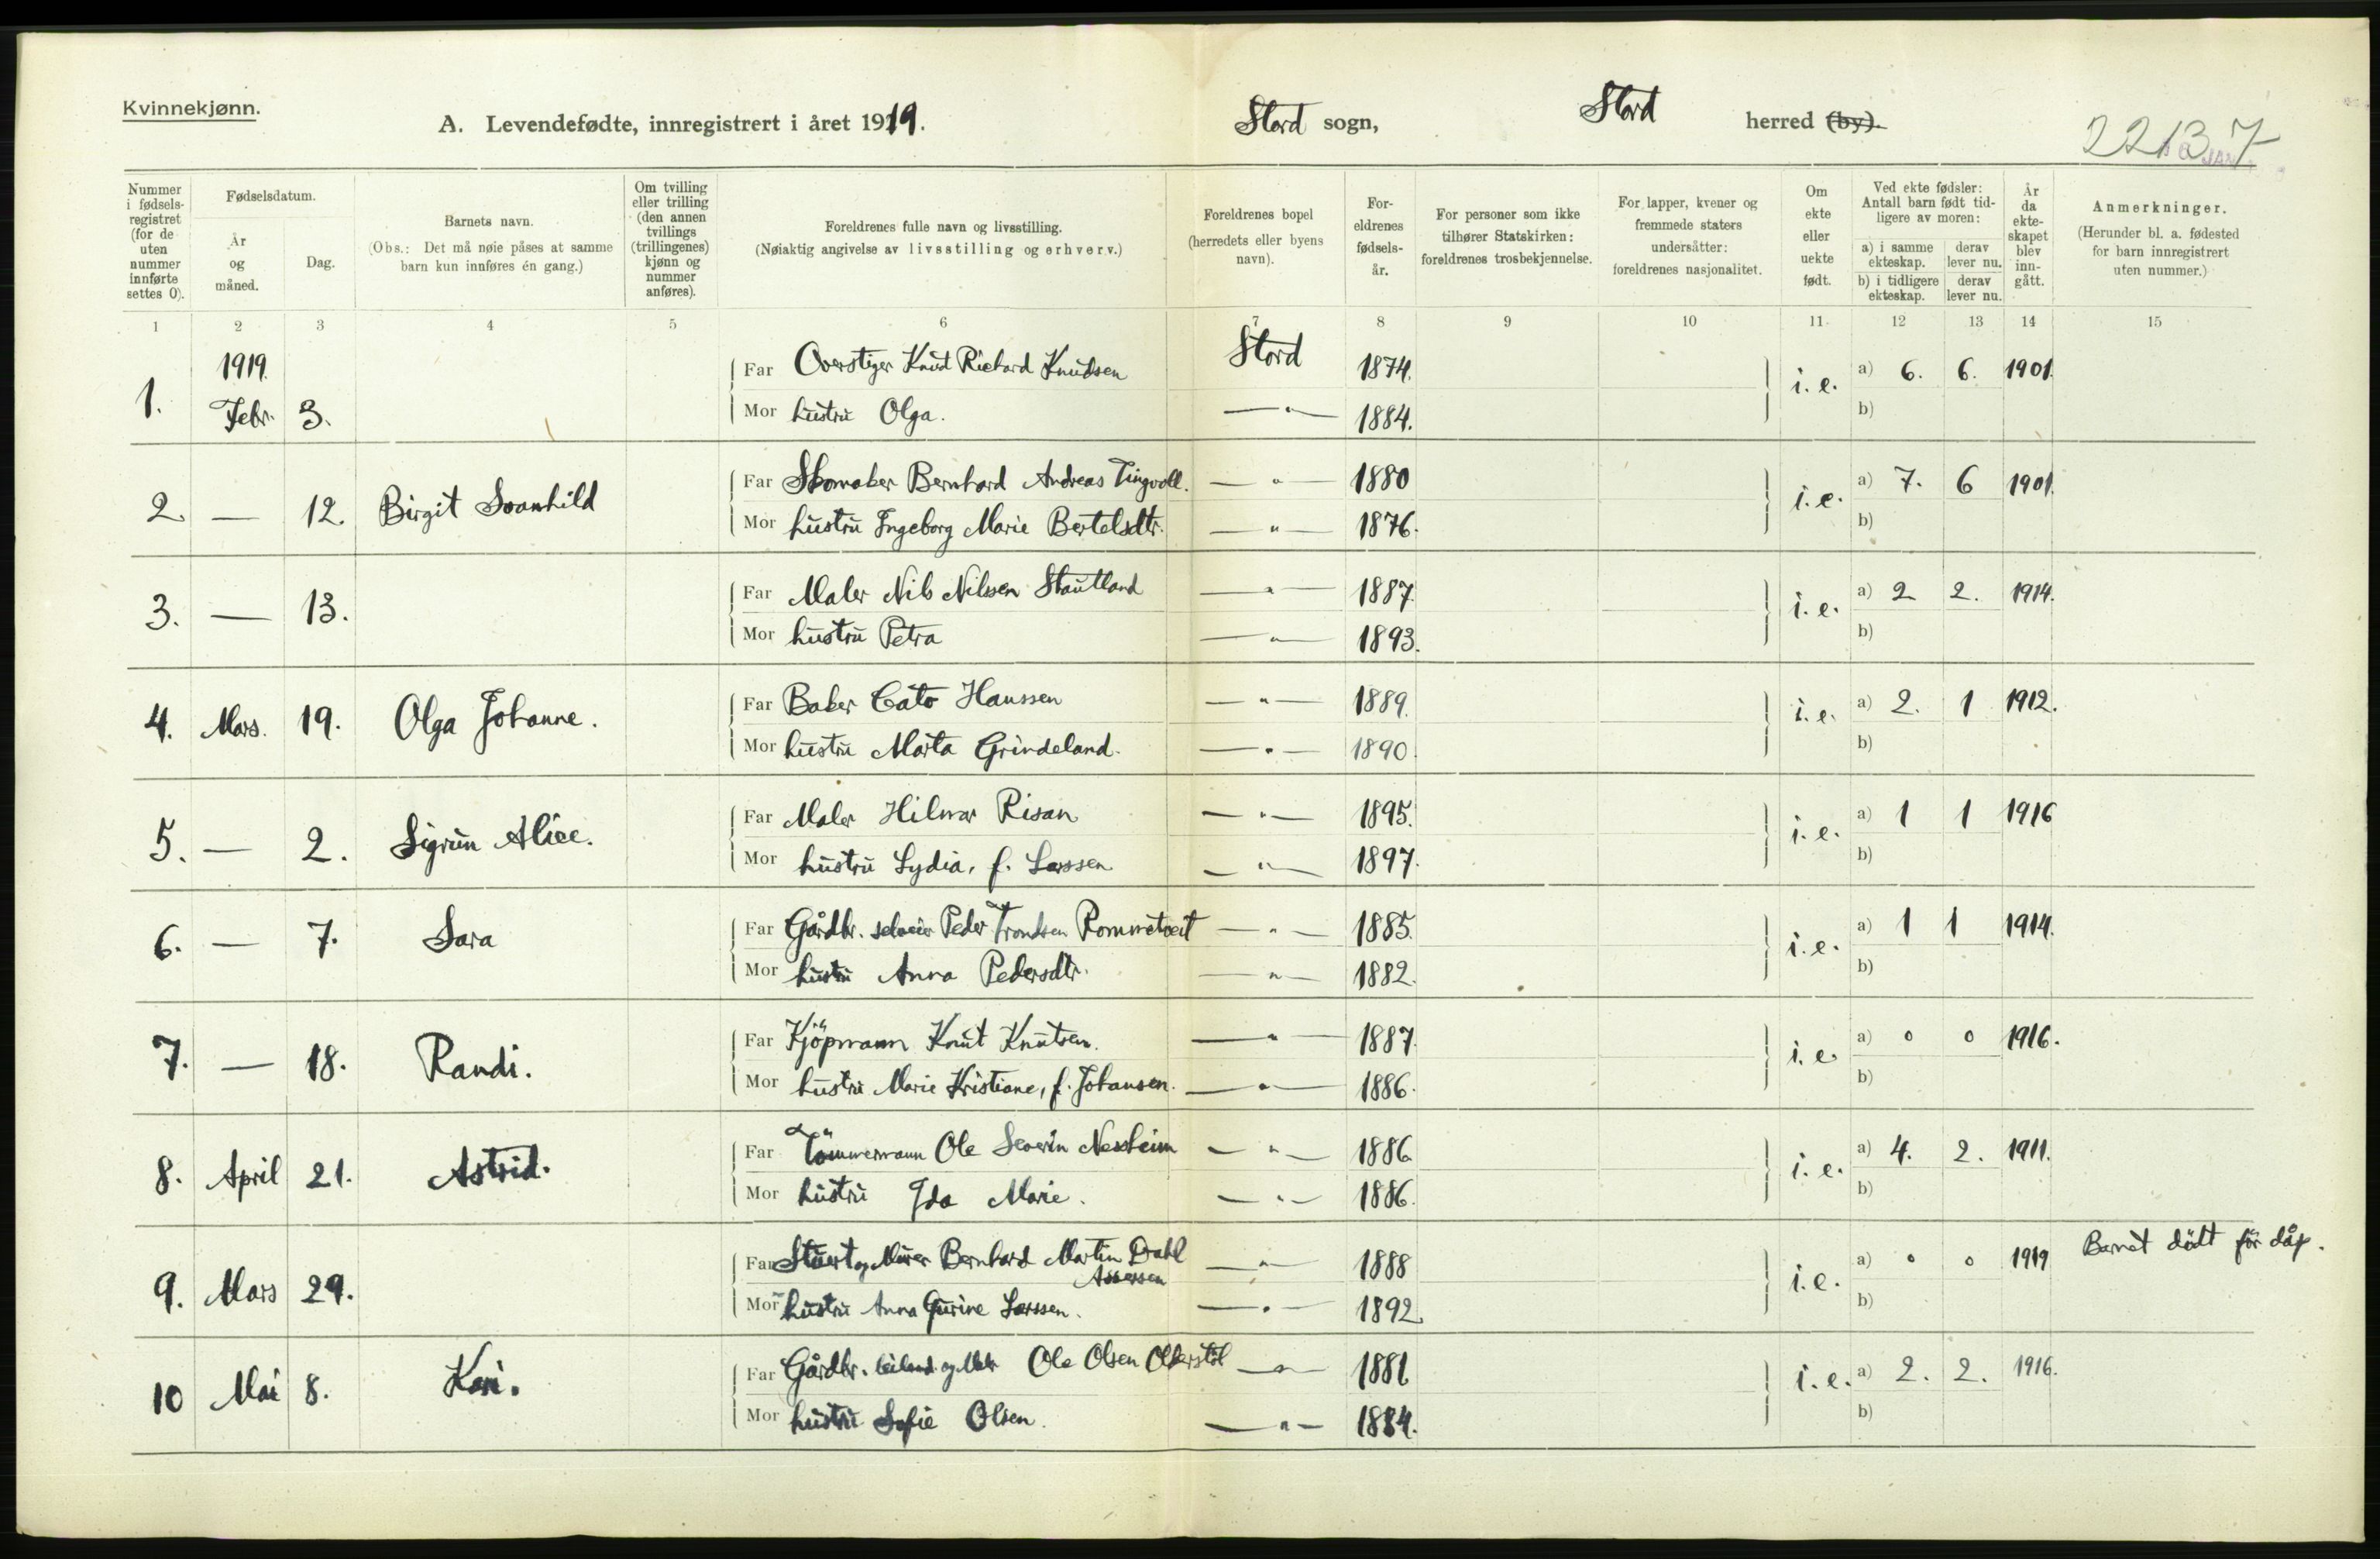 Kvinnekjønn.
A. Levendefødte, innregistrert i året 1919.
Stord sogn,
Stord herred (by).
22137
Nummer i fødsels-registret (for de uten nummer innførte settes 0).
Fødselsdatum.
År og måned.
Dag.
Barnets navn.
(Obs.: Det må nøie påses at samme barn kun innføres én gang.)
Om tvilling eller trilling (den annen tvillings (trillingenes) kjønn og nummer anføres).
Foreldrenes fulle navn og livsstilling.
(Nøiaktig angivelse av livsstilling og erhverv.)
Foreldrenes bopel (herredets eller byens navn).
For-eldrenes fødsels-år.
For personer som ikke tilhører Statskirken: foreldrenes trosbekjennelse.
For lapper, kvener og fremmede staters undersåtter: foreldrenes nasjonalitet.
Om ekte eller uekte født.
Ved ekte fødsler: Antall barn født tid-ligere av moren:
a) i samme ekteskap.
derav lever nu.
b) i tidligere ekteskap.
derav lever nu.
År da ekte-skapet blev inn-gått.
Anmerkninger.
(Herunder bl. a. fødested for barn innregistrert uten nummer.)
1 2 3 4 5 6 7 8 9 10 11 12 13 14 15
1. 1919. Febr. 3.
Far Overstiger Knut Richard Knudsen Stord 1874. i. e. a) 6. 6. 1901.
Mor hustru Olga. — " — 1884. b)
2. — 12. Birgit Svanhild
Far Skomaker Bernhard Andreas Tingvoll. — " — 1880 i. e. a) 7. 6 1901.
Mor hustru Ingeborg Marie Bertelsdtr. — " — 1876. b)
3. — 13.
Far Maler Nils Nilssen Stautland — " — 1887. i. e. a) 2 2. 1914.
Mor hustru Petra — " — 1893. b)
4. Mars. 19. Olga Johanne.
Far Baker Cato Hanssen — " — 1889. i. e. a) 2. 1 1912.
Mor hustru Marta Grindeland. — " — 1890. b)
5. — 2. Sigrun Alice.
Far Maler Hilmar Risan — " — 1895. i. e. a) 1 1 1916
Mor hustru Lydia, f. Larssen — " — 1897. b)
6. — 7. Sara
Far Gårdbr. selveier Peder Trondsen Rommetveit — " — 1885. i. e. a) 1 1 1914.
Mor hustru Anna Pedersdtr. — " — 1882. b)
7. — 18. Randi.
Far Kjöpmann Knut Knutsen. — " — 1887. i. e. a) 0 0 1916.
Mor hustru Marie Kristiane, f. Johansen. — " — 1886. b)
8. April 21. Astrid.
Far Tömmermann Ole Severin Nessheim — " — 1886 i. e. a) 4. 2. 1911.
Mor hustru Ida Marie. — " — 1886. b)
9. Mars 29.
Far og Murer Bernhard Martin Dahl Assersen — " — 1888 i. e. a) 0 0 1919 Barnet dödt för dåp.
Mor hustru Anna Gurine Larssen. — " — 1892. b)
10 Mai 8. Kari.
Far Gårdbr. Ole Olsen — " — 1881 i. e. a) 2. 2. 1916.
Mor hustru Sofie Olsen. — " — 1884. b)